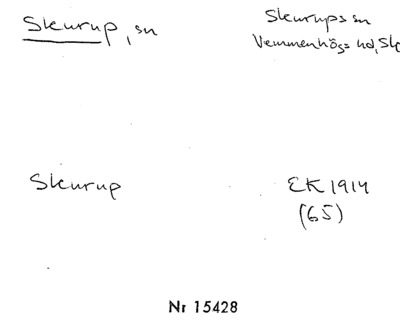 Skurup, sn
Skurups sn
Vemmenhögs hd, Sk
Skurup
EK 1914
(65)
Nr 15428